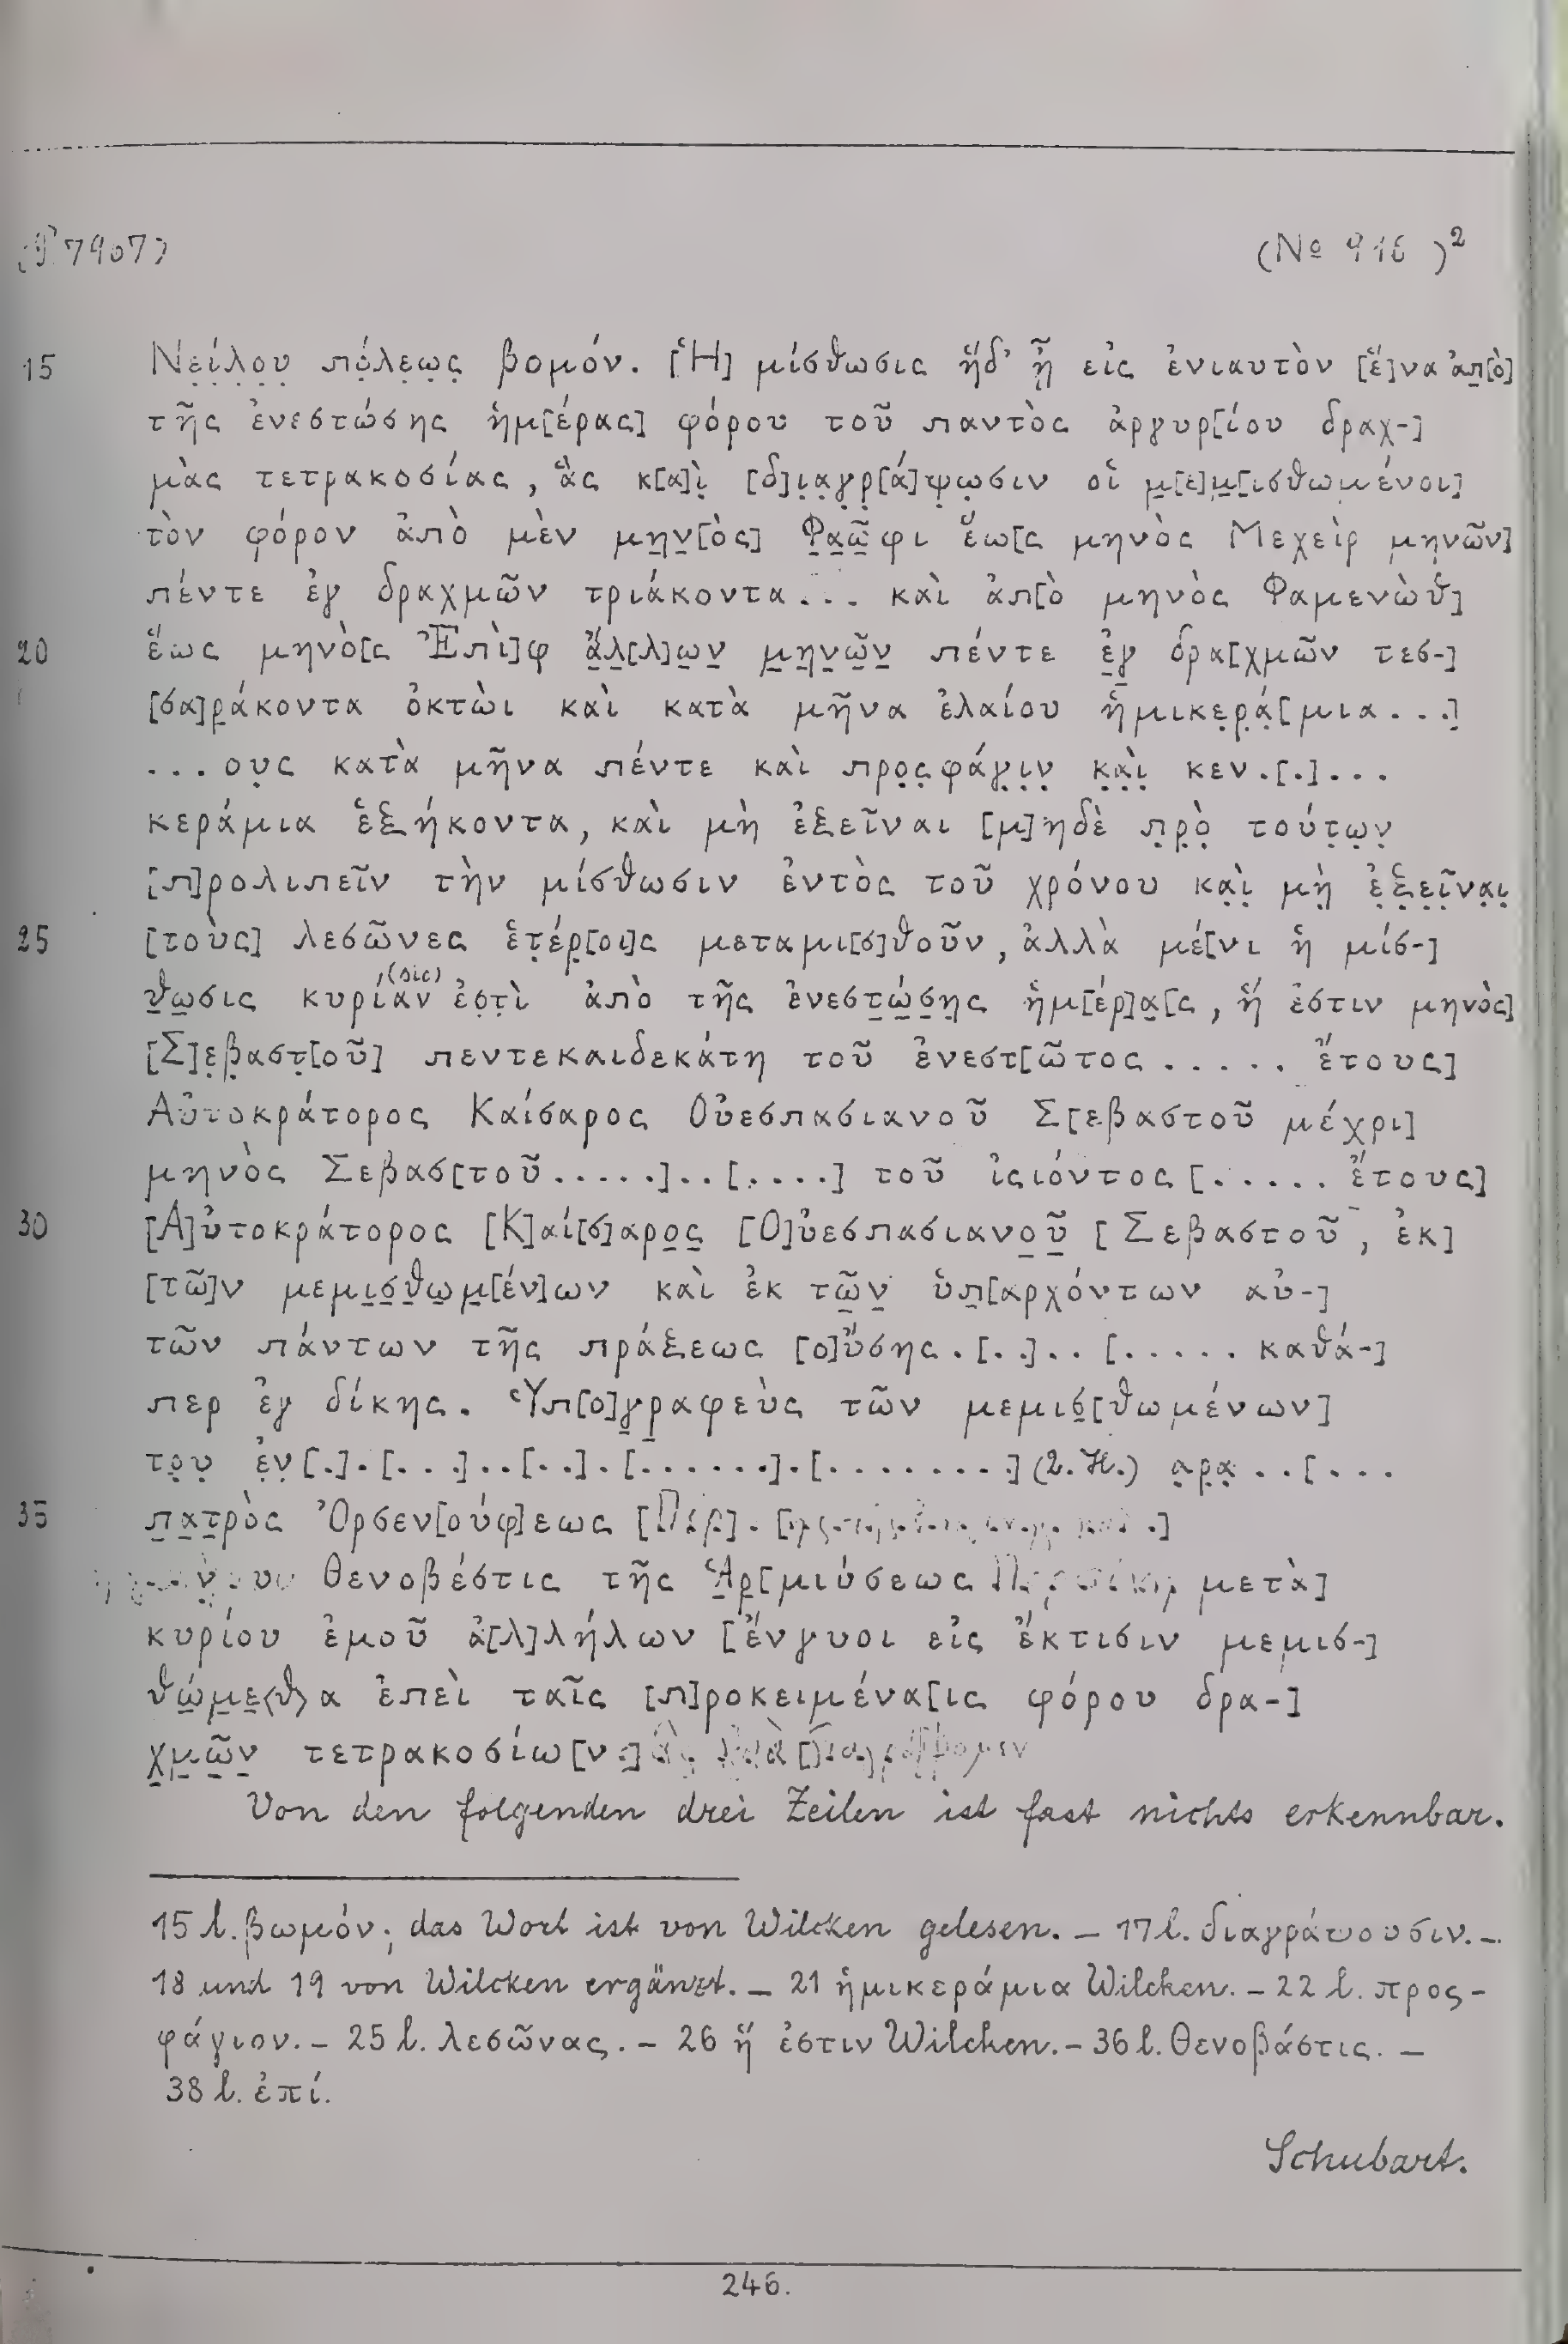 (P 7907) (No 916)²
15 Ν̣ε̣ί̣λ̣ο̣υ̣ πό̣λ̣ε̣ω̣ς̣ βομόν. [Ἡ] μίσθωσις ἥδ' ᾖ εἰς ἐνιαυτὸν [ἕ]να ἀπ̣[ὸ]
τῆς ἐνεστώσης ἡμ[έρας] φόρου τοῦ παντὸς ἀργυρ[ίου δραχ-]
μὰς τετρακοσίας, ἃς κ[α]ὶ̣ [δ]ι̣α̣γ̣ρ̣[ά]ψ̣ω̣σιν οἱ μ̣[ε]μ̣[ισθωμένοι]
τὸν φόρον ἀπὸ μὲν μη̣ν̣[ὸς] Φ̣α̣ῶ̣φι ἕω[ς μηνὸς Μεχεὶρ μηνῶν]
πέντε ἐγ δραχμῶν τριάκοντα... καὶ ἀπ[ὸ μηνὸς Φαμενὼθ]
20 ἕως μηνὸ[ς Ἐπὶ]φ ἄ̣λ̣[λ]ω̣ν̣ μ̣η̣ν̣ῶ̣ν̣ πέντε ἐ̣γ̣ δρα[χμῶν τεσ-]
[σα]ρ̣άκοντα ὀκτὼι καὶ κατὰ μῆνα ἐλαίου ἡμικε̣ρ̣ά̣[μια...]
...ου̣ς κατὰ μῆνα πέντε καὶ προ̣ς̣φάγ̣ι̣ν̣ κ̣α̣ὶ̣ κεν.[.]...
κεράμια ἑξήκοντα, καὶ μὴ ἐξεῖναι [μ]ηδὲ π̣ρ̣ὸ̣ τούτ̣ω̣ν̣
[π]ρολιπεῖν τὴν μίσθωσιν ἐντὸς τοῦ χρόνου κα̣ὶ̣ μὴ̣ ἐ̣ξ̣ε̣ῖ̣να̣ι̣
25 [τοὺς] λεσῶνες ἑτ̣έρ̣[οι]ς μεταμι[σ]θοῦν, ἀλλὰ μέ[νι ἡ μίσ-]
(sic)
θ̣ω̣σις κυρίαν ἐσ̣τ̣ὶ ἀπὸ τῆς ἐνεστ̣ώ̣σ̣ης ἡμ[έρ]α̣[ς, ἥ ἐστιν μηνὸς]
[Σ]ε̣β̣αστ̣[οῦ] πεντεκαιδεκάτη τοῦ ἐνεστ[ῶτος ..... ἔτους]
Αὐτοκράτορος Καίσαρος Οὐεσπασιανοῦ Σ[εβαστοῦ μέχρι]
μηνὸς Σεβασ[τοῦ.....]..[....] τοῦ ἰςιόντος [..... ἔτους]
30 [Α]ὐτοκράτορος [Κ]αί[σ]αρο̣ς̣ [Ο]ὐεσπασιανο̣ῦ̣ [Σεβαστοῦ, ἐκ]
[τῶ]ν μεμι̣σ̣θ̣ω̣μ̣[έν]ων καὶ ἐκ τῶ̣ν̣ ὑπ̣[αρχόντων αὐ-]
τῶν πάντων τῆς πράξεως [ο]ὔσης.[..]..[..... καθά-]
περ ἐγ δίκης. Ὑπ[ο]γ̣ρ̣αφεὺς τῶν μεμισ̣[θωμένων]
το̣υ̣ ἐ̣ν̣[.].[...]..[..].[......].[........] (2. H.) α̣ρ̣α̣..[...
35 π̣α̣τ̣ρὸς Ὀρσεν[ούφ]εως
Θενοβέστις τῆς Ἁ̣ρ̣[μιύσεως μετὰ]
κυρίου ἐμοῦ ἀ[λ]λήλων [ἔνγυοι εἰς ἔκτισιν μεμισ-]
θώ̣μ̣ε̣<θ>α ἐπεὶ ταῖς [π]ροκειμένα[ις φόρου δρα-]
χ̣μ̣ῶ̣ν̣ τετρακοσίω[ν.]
Von den folgenden drei Zeilen ist fast nichts erkennbar.
15 l. βωμόν; das Wort ist von Wilcken gelesen. – 17 l. διαγράψουσιν. –
18 und 19 von Wilcken ergänzt. – 21 ἡμικεράμια Wilcken. – 22 l. προς-
φάγιον. – 25 l. λεσῶνας. – 26 ἥ ἐστιν Wilcken. – 36 l. Θενοβάστις. –
38 l. ἐπί.
Schubart.
246.